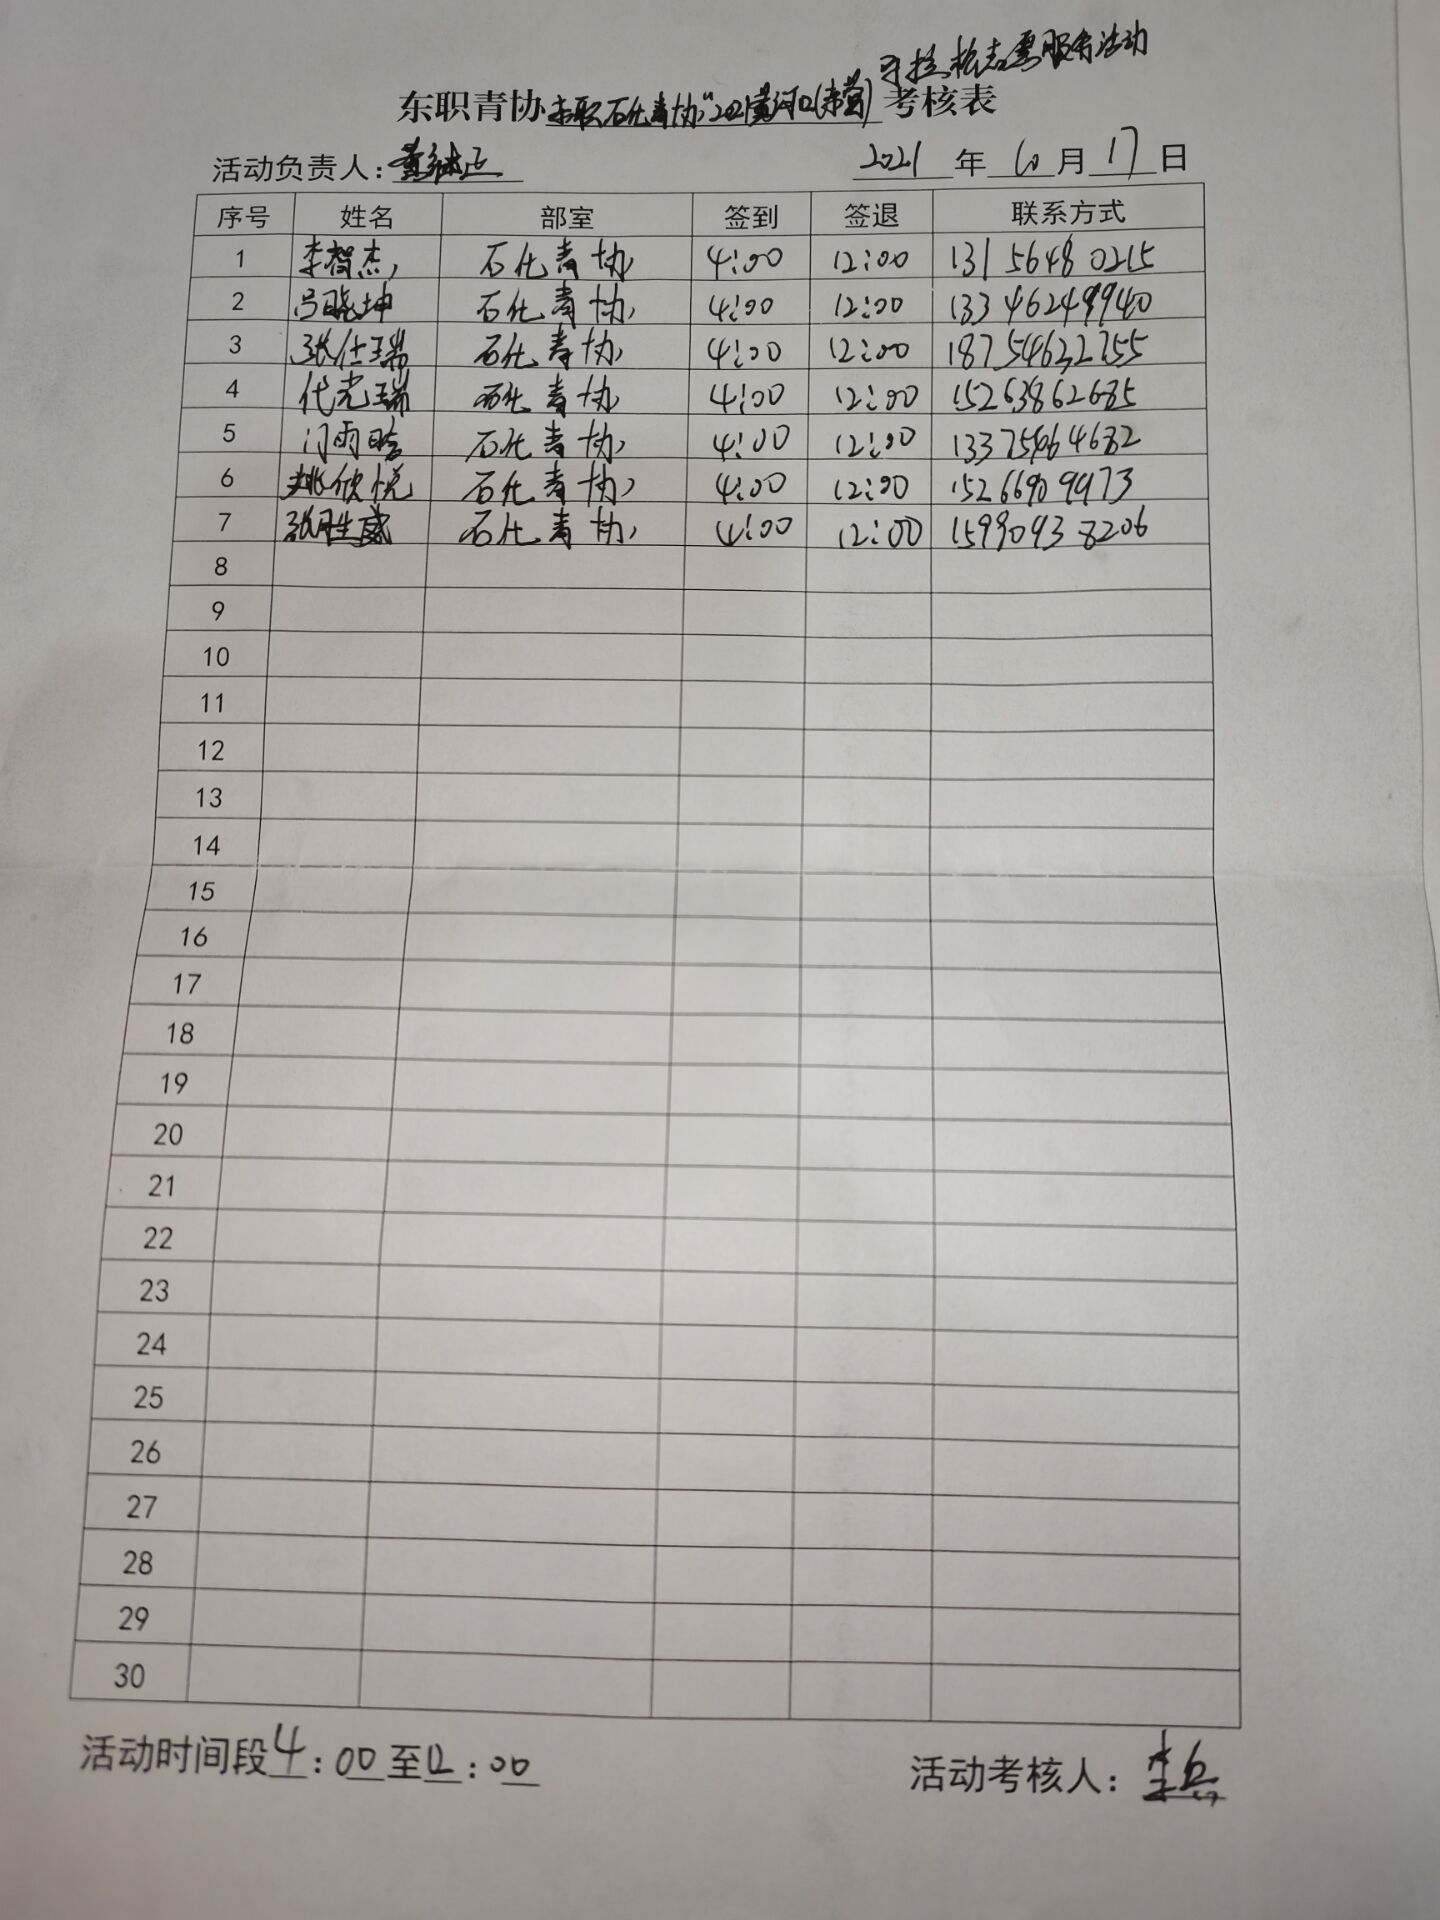 志愿服务活动
东职青协东职石化青协"2021黄河口(东营)考核表
活动负责人:黄继正 2021年10月17日
序号 姓名 部室 签到 签退 联系方式
1 李智杰 石化青协 4:00 12:00 13156480215
2 马晓坤 石化青协 4:00 12:00 13346249940
3 张仕瑞 石化青协 4:00 12:00 18754632755
4 代光瑞 石化青协 4:00 12:00 15263862685
5 门雨晗 石化青协 4:00 12:00
6 姚欣悦 石化青协 4:00 12:00 15266909973
7 张胜威 石化青协 4:00 12:00 15990938206
8
9
10
11
12
13
14
15
16
17
18
19
20
21
22
23
24
25
26
27
28
29
30
活动时间段4:00至12:00 活动考核人:李兵